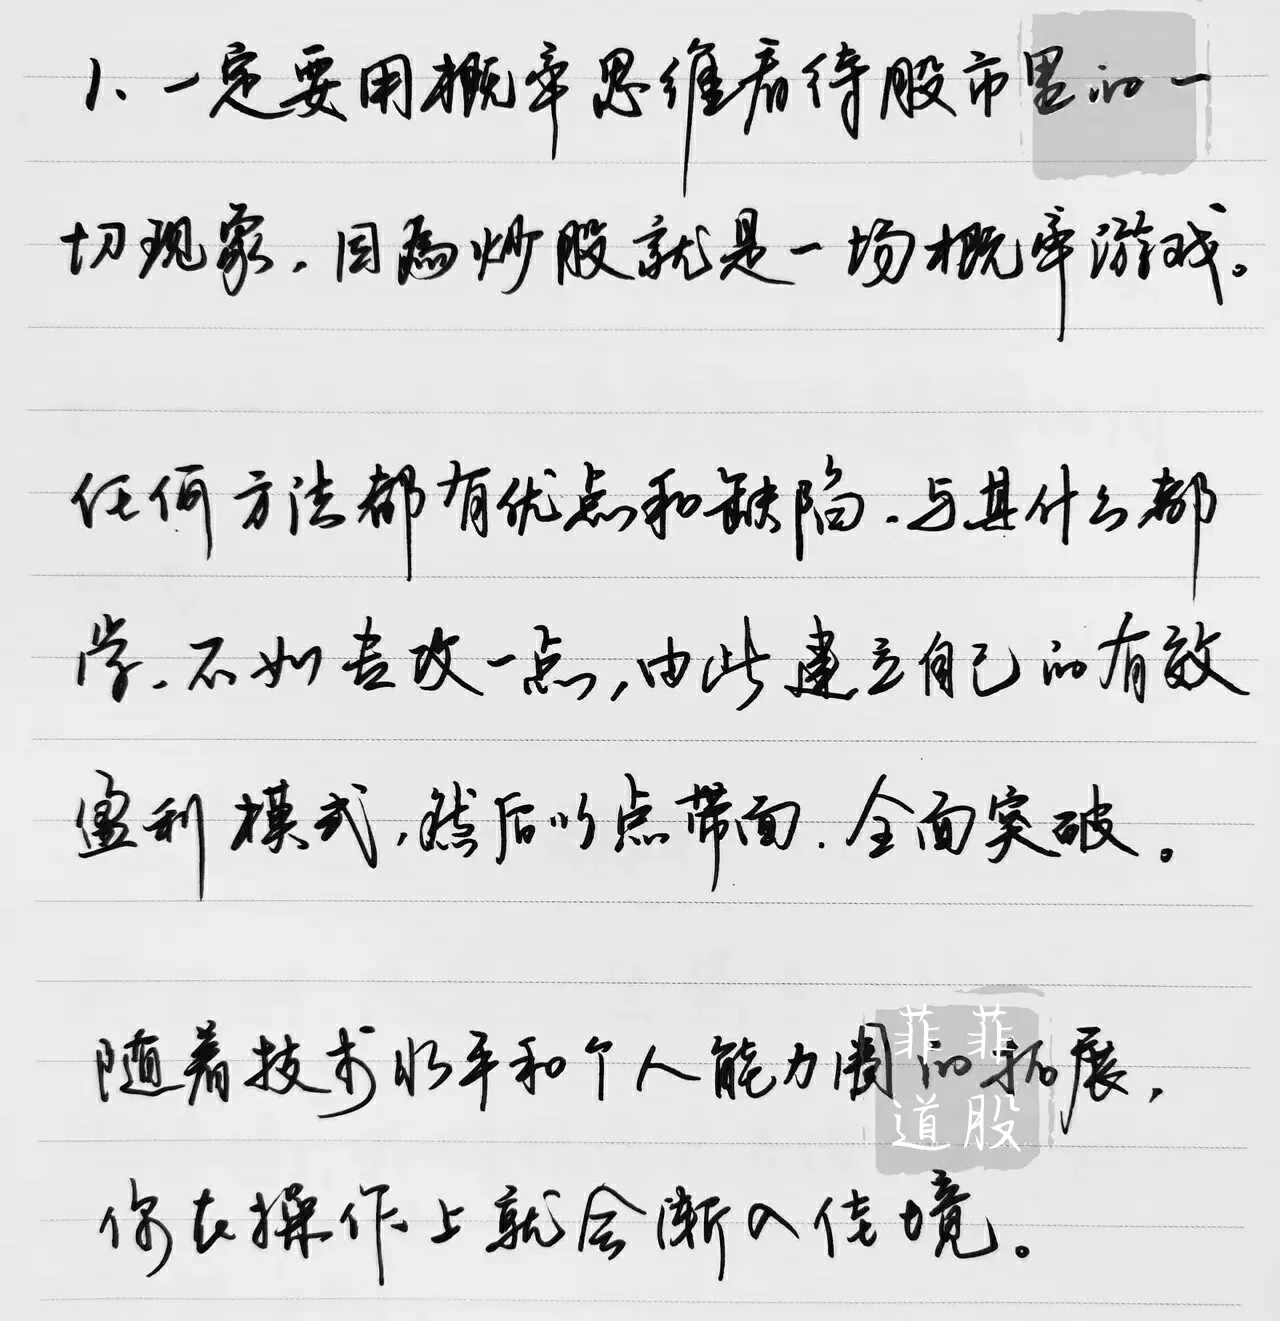 1、一定要用概率思维看待股市里的一
切现象，因為炒股就是一场概率游戏。
任何方法都有优点和缺陷，与其什么都
学，不如专攻一点，由此建立自己的有效
盈利模式，然后以点带面，全面突破。
随着技术水平和个人能力圈的拓展，
你在操作上就会渐入佳境。
菲菲
道股